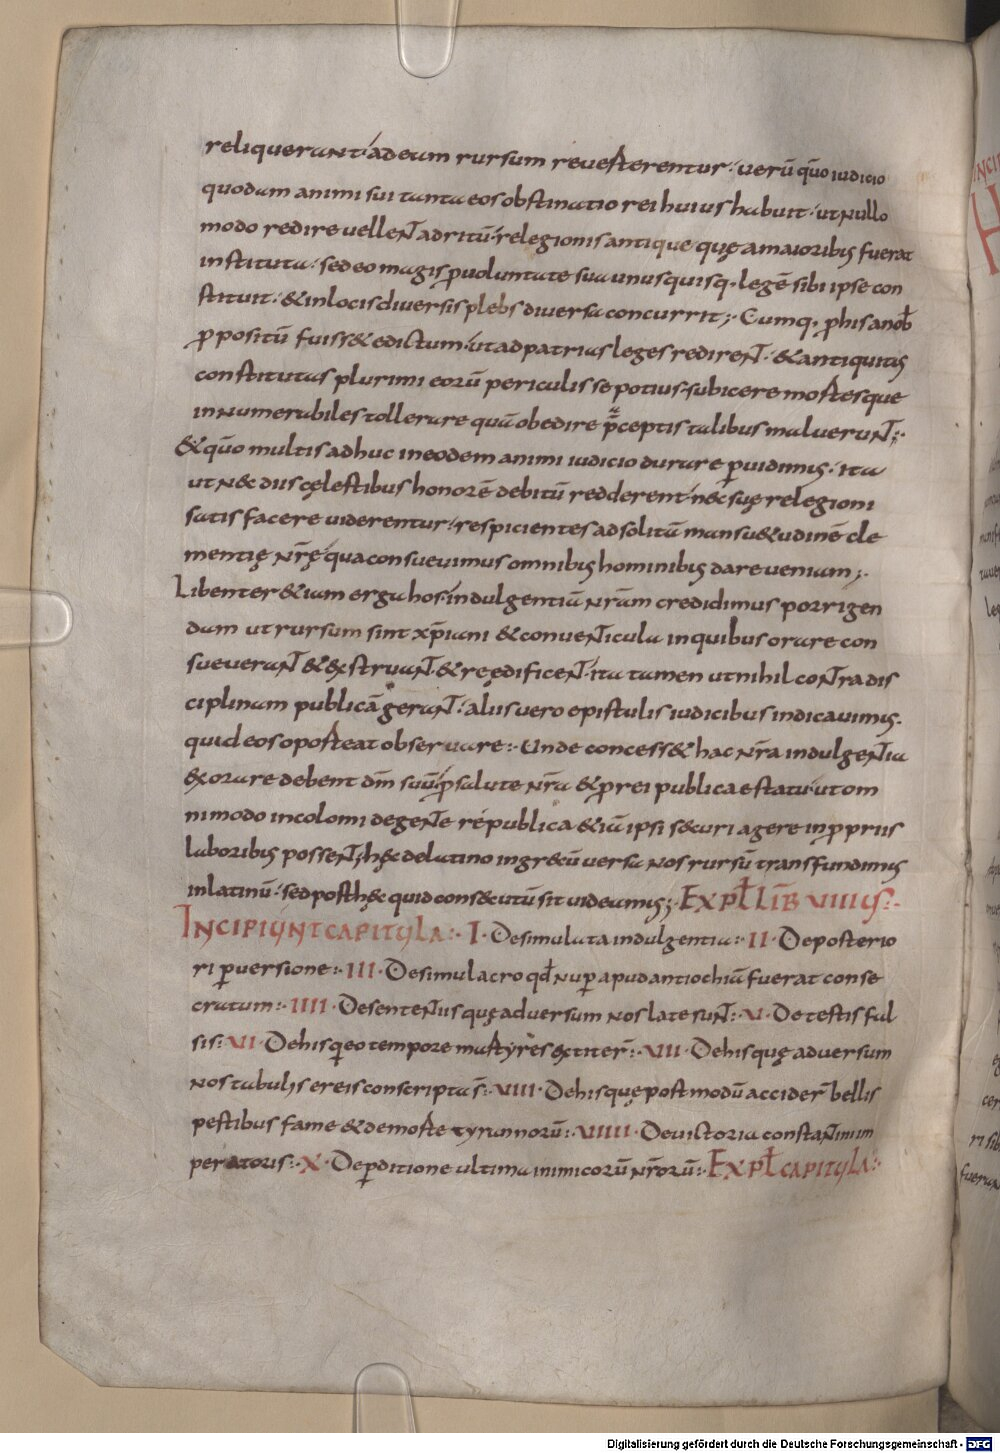 reliquerant ad eam rursum reuerterentur. uerū quō iudicio
quodam animi sui tanta eos obstinatio rei huius habuit. ut nullo
modo redire uellent ad ritū relegionis antique quę a maioribus fuerat
instituta. sed eo magis ꝓ uoluntate sua unusquisq. legē sibi ipse con
stituit. & in locis diuersis plebs diuersa concurrit; Cumq. ꝑ his a nob̄
ꝓpositū fuiss& edictum. ut ad patrias leges redirent. & antiquitus
constitutas plurimi eorū periculis se potius subicere mortesque
innumerabiles tollerare quā obedire p̄ceptis talibus maluerunt;
& quō multis adhuc in eodem animi iudicio durare ꝑuidimus. ita
ut nec diis cęlestibus honorē debitū redderent nec suę relegioni
satisfacere uiderentur. respicientes ad solitū mansu&udinē cle
mentię nr̄ę qua consueuimus omnibus hominibus dare ueniam;
Libenter &iam erga hos indulgentiā nr̄am credidimus porrigen
dam ut rursum sint xp̄iani & conuenticula in quibus orare con
sueuerant & exstruant & reędificent. ita tamen ut nihil contra dis
ciplinam publicā gerant. aliis uero epistulis iudicibus indicauimus.
quid eos oporteat obseruare. Unde concess& hac nr̄a indulgentia
exorare debent dm̄ suū ꝓ salute nr̄a & ꝓ rei publicae statu. ut om
nimodo incolomi degente re publica & iā ipsi securi agere in ꝓpriis
laboribus possent; hęc de latino in grecū uersa nos rursū transfundimus
in latinū. sed post hęc quid consecutū sit uideamus; EXPƚ LIB̄ VIIII US.
INCIPIUNT CAPITULA. I. De simulata indulgentia. II. De posterio
ri ꝑuersione. III. De simulacro qđ nuꝑ apud antiochiā fuerat conse
cratum. IIII. De sententiis quę aduersum nos late sunt. V. De testis fal
sis. VI. De his qui eo tempore martyres extiter̄. VII. De his quę aduersum
nos tabulis ereis conscripta s̄. VIII. De his quę postmodū accider̄ bellis
pestibus fame & de morte tyrannorū. VIIII. De uictoria constantini im
peratoris. X. De ꝑditione ultima inimicorū nr̄orū. EXPƚ CAPITULA.
Digitalisierung gefördert durch die Deutsche Forschungsgemeinschaft - DFG